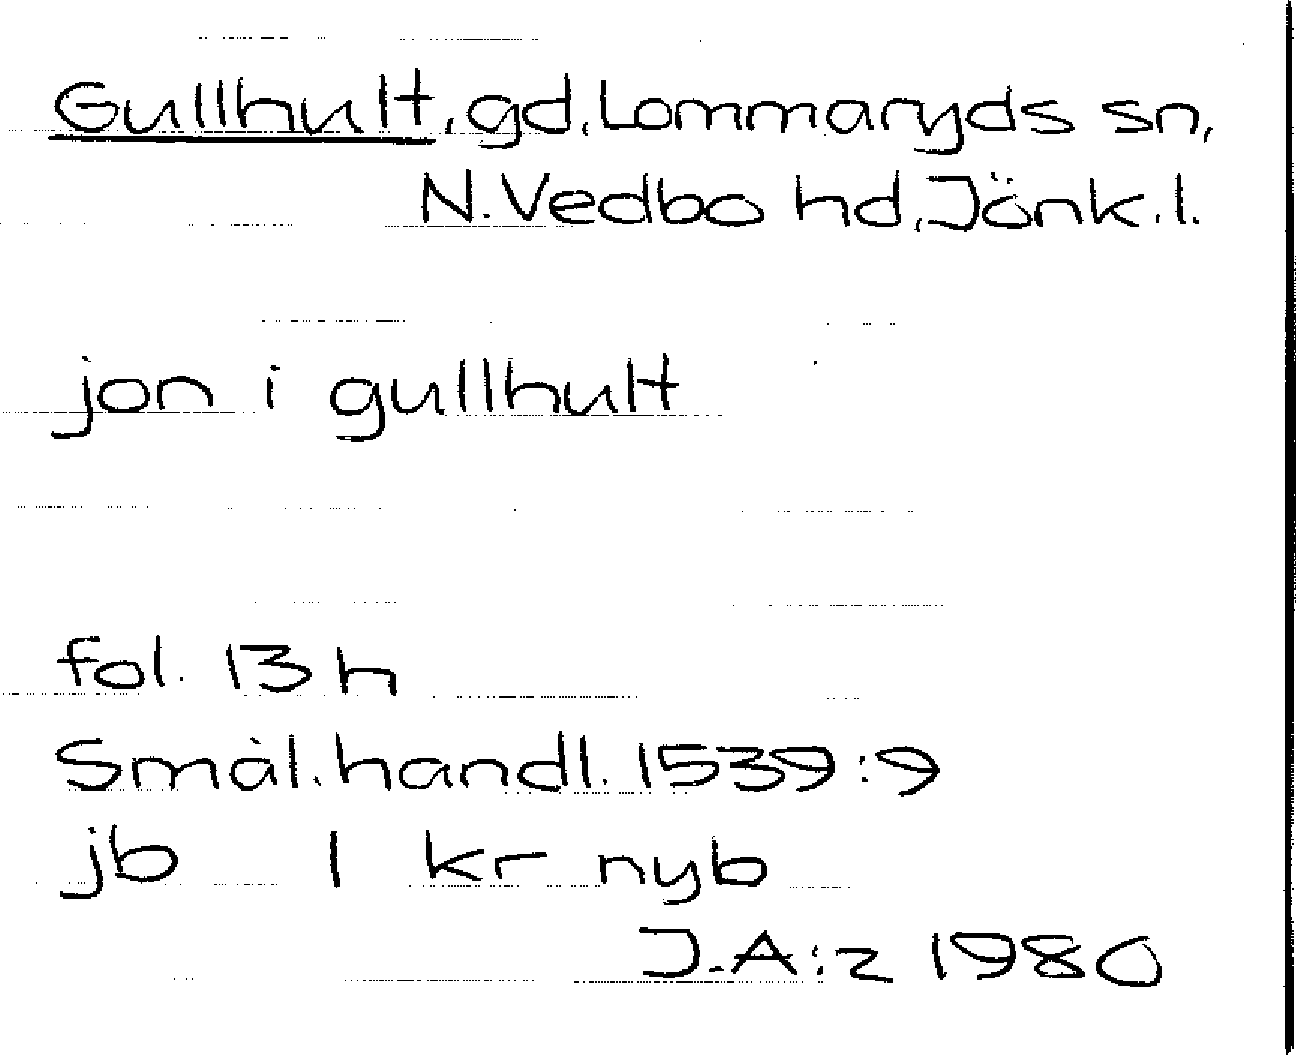 Gullhult, gd, Lommaryds sn,
N. Vedbo hd, Jönk. l.
jon i gullhult
fol. 13 h
Smål. handl. 1539:9
jb 1 kr nyb
J.A:z 1980